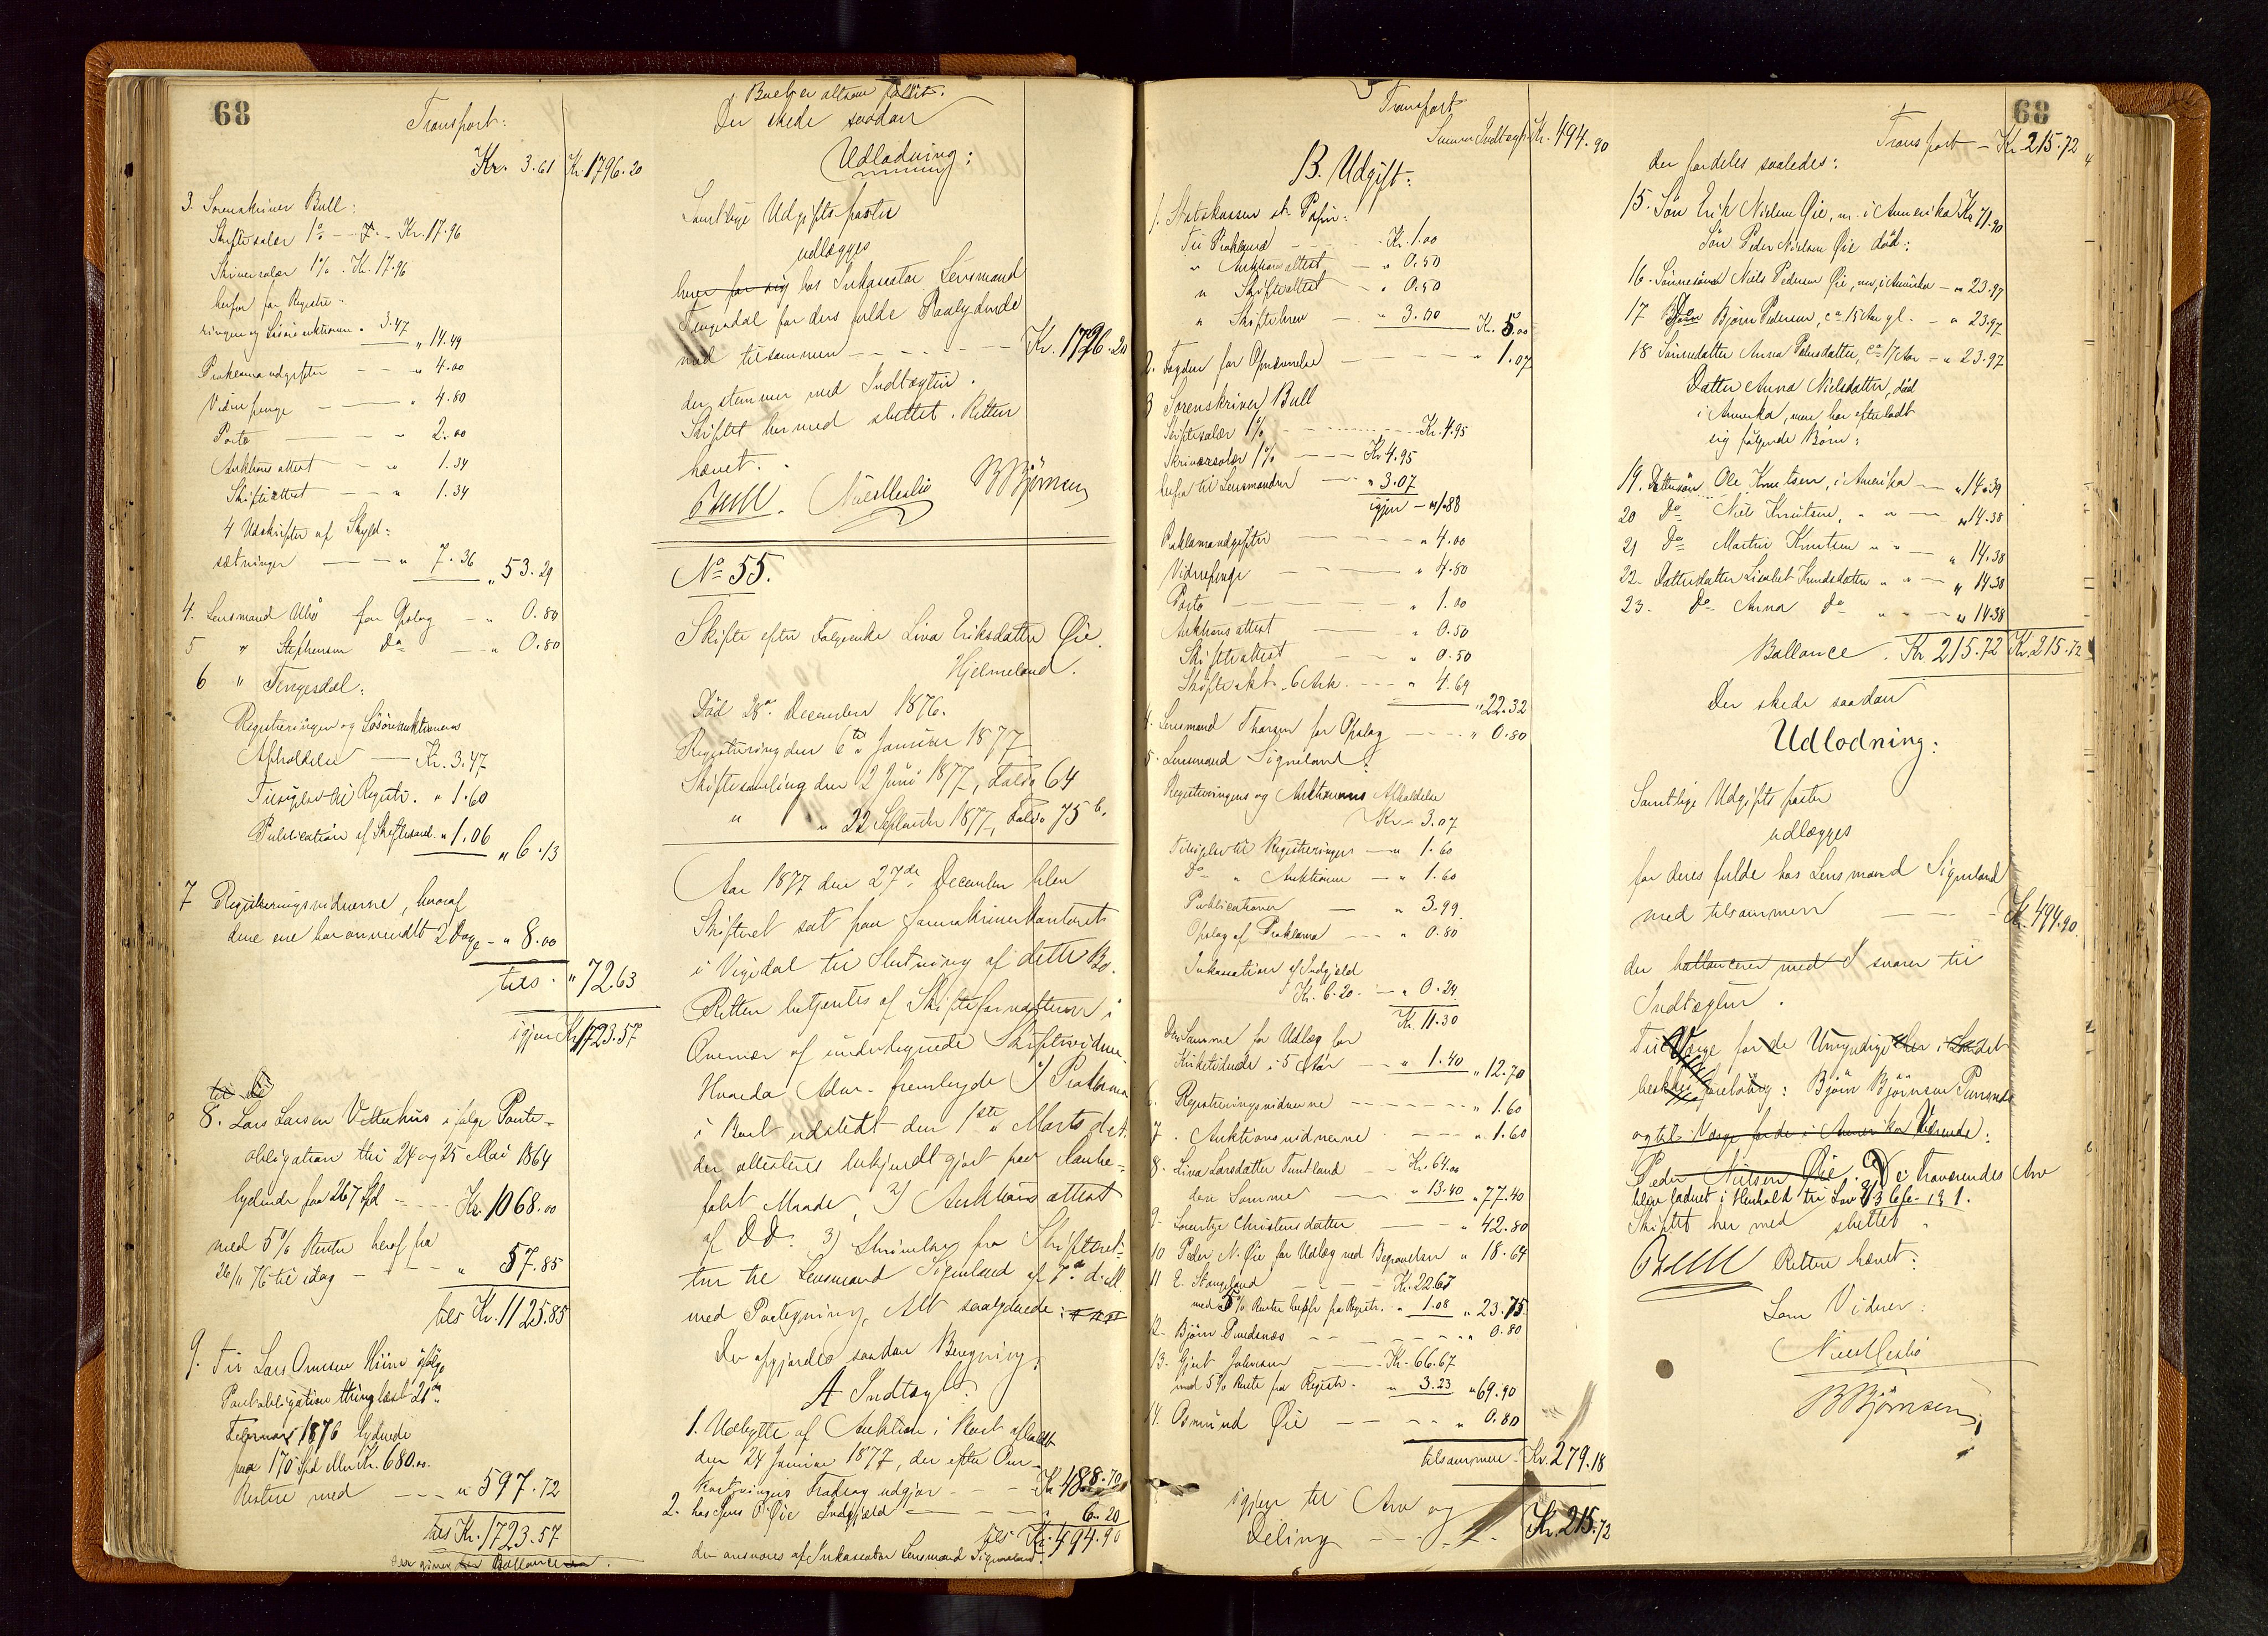 68
Transport:
Kr. 3.61 Kr. 1796.20
3. Sorenskriver Bull:
Skiftesalær 1% - Kr. 17.96
Skriversalær 1% . Kr. 17.96
herfor for Registre-
ringen og Løsöreauktionen " 3.47 " 14.49
Proklamaudgifter - - " 4.00
Vidnepenge - " 4.80
Porto - " 2.00
Auktionsattest - " 1.34
Skifteattest - " 1.34
4 Udskrifter af Skyld-
sætninger - " 7.36 " 53.29
4. Lensmand for Opslag - " 0.80
5 " Stephensen Do - " 0.80
6 " Tengesdal:
Registreringen og Løsöreauktionens
Afholdelse - Kr. 3.47
Tilsigelse til Registr. " 1.60
Publication af Skiftesaml. " 1.06 " 6.13
7 Registreringsvidnerne, hvoraf
dene ene har anvendt 2 Dage - " 8.00
tils. " 72.63
igjen Kr. 1723.57
8. Lars Larsen Vetterhus ifølge Pante-
obligation thl 24 og 25 Mai 1864
lydende paa 267 Spd - Kr. 1068.00
med 5% Renter heraf fra
26/11 76 til idag - " 57.85
tils Kr. 1125.85
9. Til Lars Hiim ifölge
Pantobligation thinglæst 21de
Februar 1876 lydende
paa 170 Spd eller Kr. 680.00
Resten med - " 597.72
tils Kr. 1723.57
Der giver Ballance
Boet er altsaa fallit.
Der skede saadan
Udlodning:
Samtlige Udgiftsposter
udlægges
hver for sig hos Inkassator Lensmand
Tengesdal for ders fulde Paalydende
med tilsammen - Kr. 1796.20
der stemmer med Indtægten.
Skiftet hermed sluttet. Retten
hævet.
Bull. B Björnsen
No 55.
Skifte efter Liva Eriksdatter Øie
Hjelmeland.
Död 28de December 1876.
Registrering den 6te Januar 1877
Skiftesamling den 2 Juni 1877, Folio 64
" " 22 September 1877, Folio 75 b.
Aar 1877 den 27de December blev
Skifteret sat paa Sorenskriverkontoret
i Vigedal til Slutning af dette Bo.
Retten betjentes af Skifteforvalteren i
Overvær af undertegnede Skiftevidner.
Hvorda Adm. fremlagde 1) Proklama
i Boet udstedt den 1ste Marts d.A.
der attesteres bekjendtgjort paa lovbe-
falet Maade, 2) Auktionsattest
af D.D. 3) Skrivelse fra Skifteret-
ten til Lensmand Signeland af d.M.
med Paategning, Alt saalydende:
Der opgjordes saadan Beregning:
A Indtægt:
1. Udbytte af Auktion i Boet afholdt
den 24 Januar 1877, der efter Om-
kostningers Fradrag udgjør - Kr 488.70
2. hos Jens O. Øie Indgjæld - " 6.20
tils Kr. 494.90
der ansvares af Inkassator Lensmand Signeland.
Transport
Summa Indtægt Kr. 494.90
B. Udgift:
1. Statskassen st. Papir:
Til Proklama - Kr. 1.00
" Auktionsattest - " 0.50
" Skifteattest - " 0.50
" Skiftebrev - " 3.00 Kr. 5.00
2. Fogden for Opnævnelse - " 1.07
3 Sorenskriver Bull
Skiftesalær 1% - Kr. 4.95
Skriversalær 1% - Kr 4.95
herfra til Lensmanden - " 3.07
igjen - " 1.88
Proklamaudgifter - " 4.00
Vidnepenge - " 4.80
Porto - " 1.00
Auktionsattest - " 0.50
Skifteattest - " 0.50
Skifteakt 6 Ark. - " 4.69
" 22.32
4. Lensmand Thorsen for Opslag - " 0.80
5. Lensmand Signeland:
Registreringens og Auktionens Afholdelse
Kr. 3.07
Tilsigelse til Registreringen - " 1.60
Do " Auktionen - " 1.60
Publicationer - " 3.99
Opslag af Proklama - " 0.80
Inkassation af Indgjæld
Kr. 6.20 - " 0.24
Kr. 11.30
Den Samme for Udlæg for
Kirketiende i 5 Aar - " 1.40 " 12.70
6. Registreringsvidnerne - " 1.60
7. Auktionsvidnerne - " 1.60
8. Liva Larsdatter Tuntland - Kr. 64.00
den Samme - " 13.40 " 77.40
9. Christensdatter - " 42.80
10 Peder N. Øie for Udlæg ved Begravelsen " 18.64
11 E. Stangeland - Kr. 22.67
med 5% Renter fra Registr. " 1.08 " 23.75
12. Björn Pundsnæs - " 0.80
13. Gjert Johnsen - Kr. 66.67
med 5% Rente fra Registr. " 3.23 " 69.90
14. Osmund Øie - " 0.80
tilsammen - Kr. 279.18
igjen til Arv og
Deling - Kr. 215.72
68
Transport - Kr. 215.72
der fordeles saaledes:
15. Sön Erik Nielsen Øie, m. i Amerika Kr 71.90
Sön Peder Nielsen Øie död:
16. Sönnesön Niels Pedersen Øie, m, i Amerika - " 23.97
17 Do Björn Pedersen, ca 15 Aar gl. - " 23.97
18 Sönnedatter Anna Pedersdatter, ca 17 Aar - " 23.97
Datter Anna Nielsdatter, död
i Amerika, men har efterladt
sig følgende Börn:
19. Dattersön Ole Knutsen, i Amerika - " 14.39
20 Do Niels Knutsen, " " - " 14.38
21 Do Martin Knutsen " " - " 14.38
22. Datterdatter Lisabet Knudsdatter " " - " 14.38
23. Do Anna Do " " - " 14.38
Ballance . Kr. 215.72 Kr. 215.72
Der skede saadan
Udlodning:
Samtlige Udgiftsposter
udlægges
for deres fulde hos Lensmand Signeland
med tilsammen - Kr. 494.90
der ballancerer med svarer til
Indtægten.
Til Værge for de Umyndige her i Landet
beskikkes foreløbig: Björn Björnsen Pundsnæs
og til Værge for de i Amerika Værende:
Peder Nielsen Øie. De Fraværendes Arv
Skiftet hermed sluttet
Bull Retten hævet:
Som Vidner:
B Björnsen